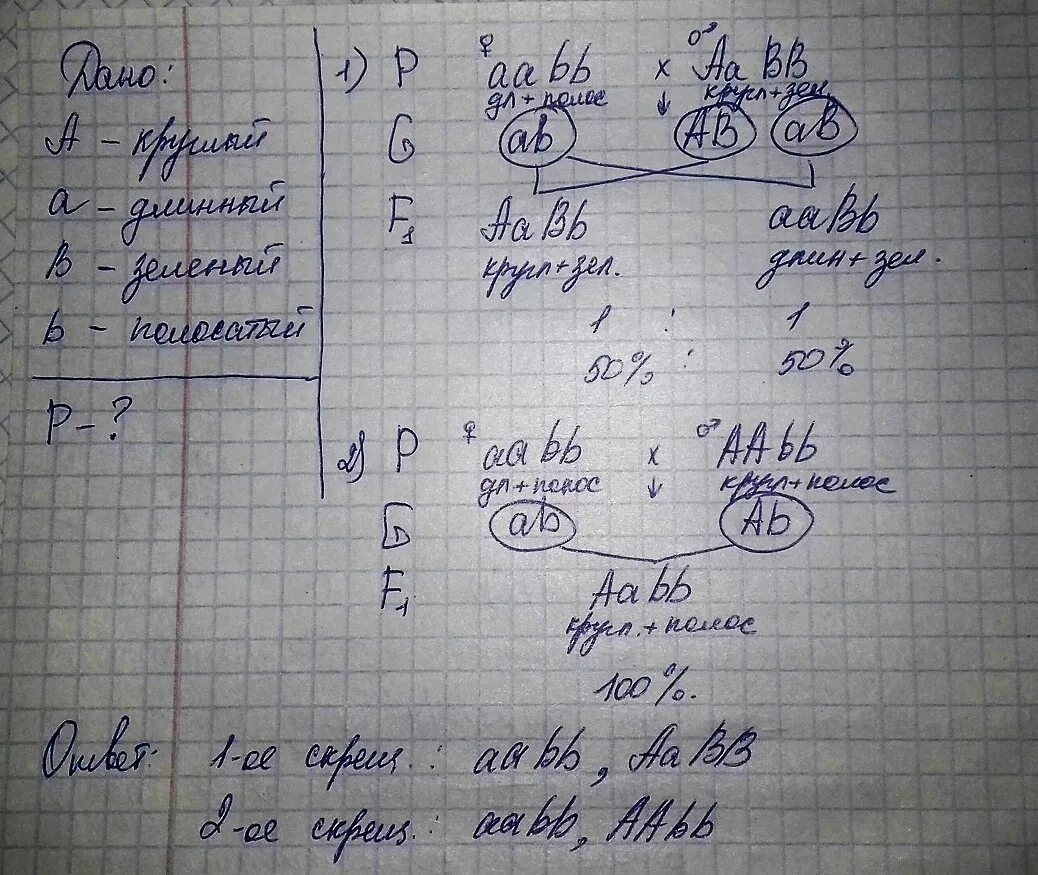 Дано:
А - круглый
а - длинный
В - зеленый
b - полосатый
Р - ?
1) Р ♀ aabb x ♂ АаВВ
дл + полос ↓ кругл + зел.
G ab AB aB
F₁ AaBb aaBb
кругл + зел. длин + зел.
1 : 1
50% : 50%
2) Р ♀ aabb x ♂ AAbb
дл + полос ↓ кругл + полос
G ab Ab
F₁ Aabb
кругл. + полос
100%.
Ответ: 1-ое скрещ.: aabb, AaBB
2-ое скрещ.: aabb, AAbb